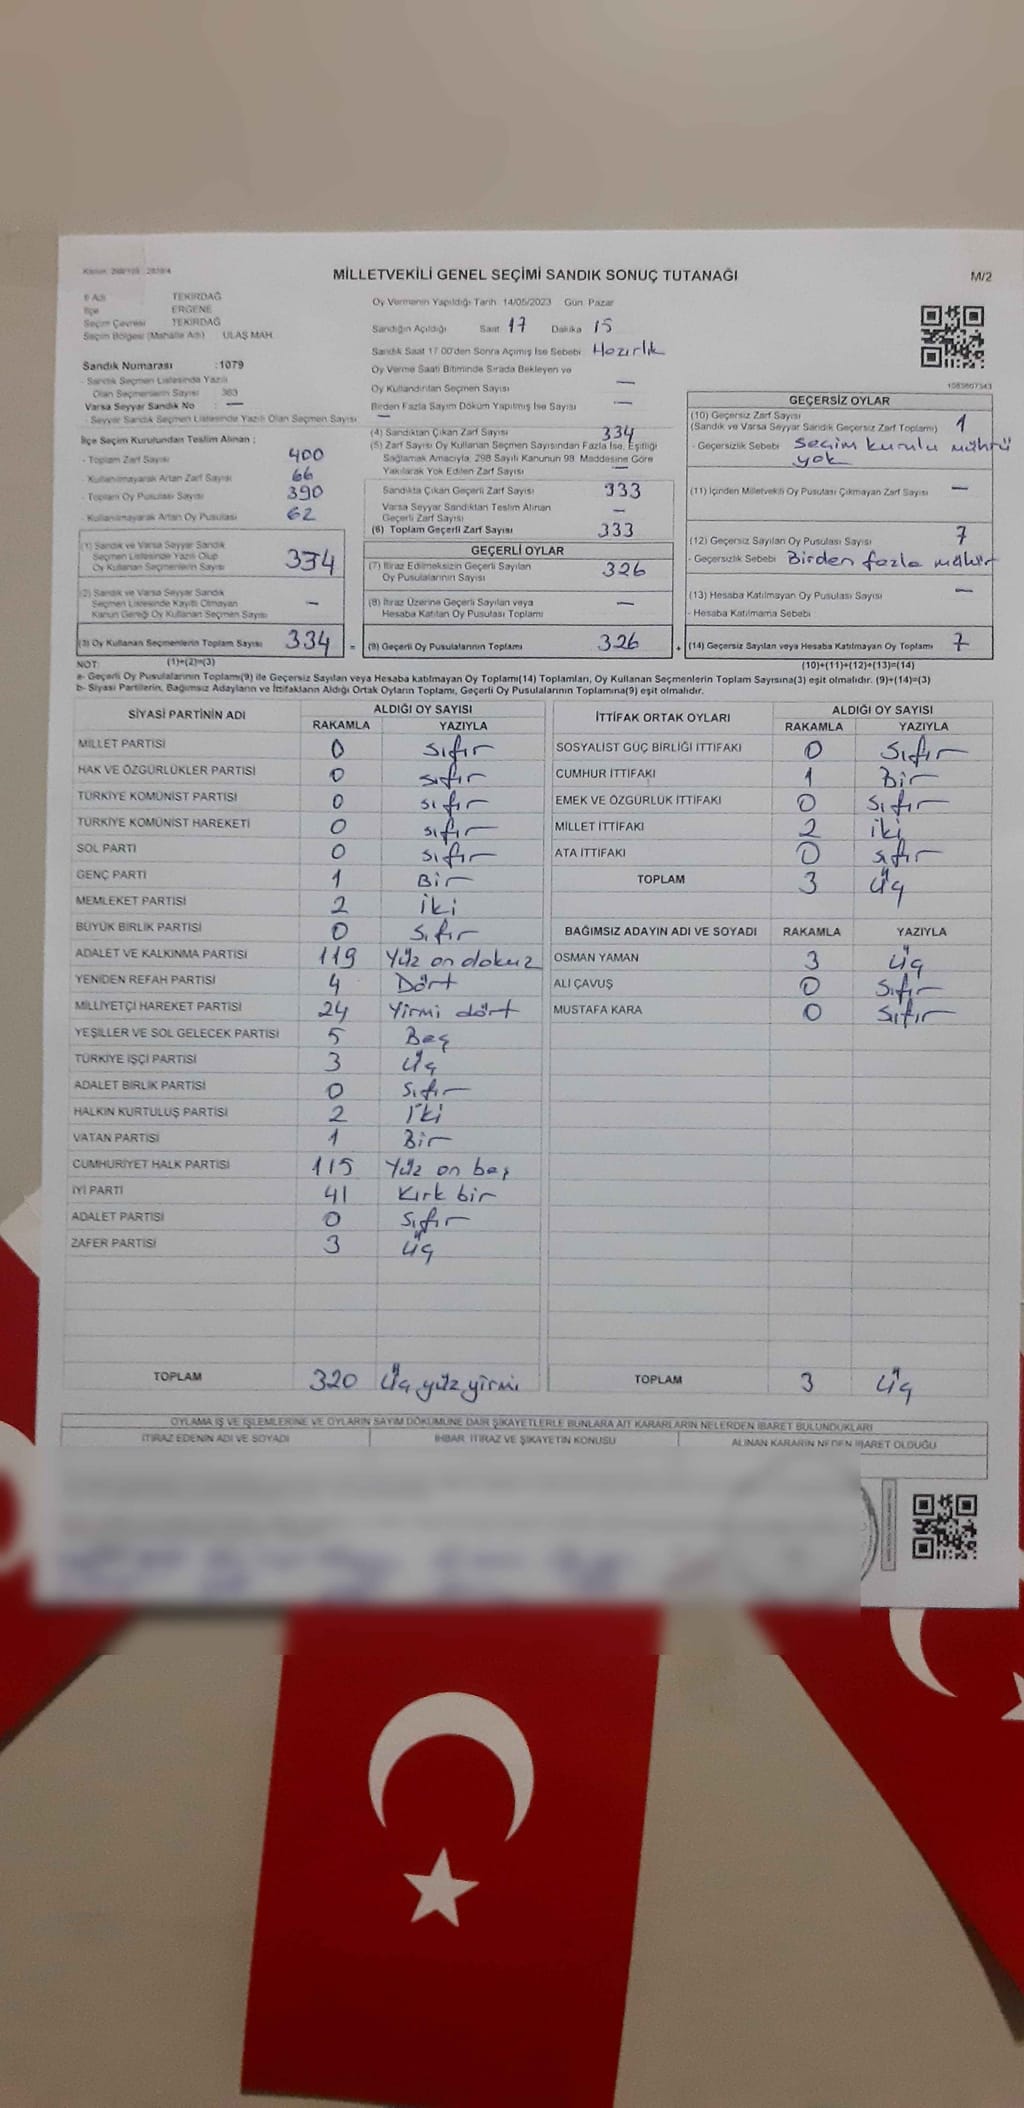 MİLLETVEKİLİ GENEL SEÇİMİ SANDIK SONUÇ TUTANAĞI
M/2
İl Adı TEKİRDAĞ
İlçe ERGENE
Seçim Çevresi TEKİRDAĞ
Seçim Bölgesi (Mahalle Adı) ULAŞ MAH.
Sandık Numarası :1079
- Sandık Seçmen Listesinde Yazılı
Olan Seçmenlerin Sayısı 383
Varsa Seyyar Sandık No : —
- Seyyar Sandık Seçmen Listesinde Yazılı Olan Seçmen Sayısı —
İlçe Seçim Kurulundan Teslim Alınan ;
- Toplam Zarf Sayısı 400
- Kullanılmayarak Artan Zarf Sayısı 66
- Toplam Oy Pusulası Sayısı 390
- Kullanılmayarak Artan Oy Pusulası 62
(1) Sandık ve Varsa Seyyar Sandık
Seçmen Listesinde Yazılı Olup
Oy Kullanan Seçmenlerin Sayısı 334
(2) Sandık ve Varsa Seyyar Sandık
Seçmen Listesinde Kayıtlı Olmayan
Kanun Gereği Oy Kullanan Seçmen Sayısı —
(3) Oy Kullanan Seçmenlerin Toplam Sayısı 334
Oy Vermenin Yapıldığı Tarih 14/05/2023 Gün Pazar
Sandığın Açıldığı Saat 17 Dakika 15
Sandık Saat 17.00'den Sonra Açımış İse Sebebi Hazırlık
Oy Verme Saati Bitiminde Sırada Bekleyen ve
Oy Kullandırılan Seçmen Sayısı —
Birden Fazla Sayım Döküm Yapılmış İse Sayısı —
(4) Sandıktan Çıkan Zarf Sayısı 334
(5) Zarf Sayısı Oy Kullanan Seçmen Sayısından Fazla İse, Eşitliği
Sağlamak Amacıyla, 298 Sayılı Kanunun 98. Maddesine Göre
Yakılarak Yok Edilen Zarf Sayısı —
Sandıkta Çıkan Geçerli Zarf Sayısı 333
Varsa Seyyar Sandıktan Teslim Alınan
Geçerli Zarf Sayısı —
(6) Toplam Geçerli Zarf Sayısı 333
GEÇERLİ OYLAR
(7) İtiraz Edilmeksizin Geçerli Sayılan
Oy Pusulalarının Sayısı 326
(8) İtiraz Üzerine Geçerli Sayılan veya
Hesaba Katılan Oy Pusulası Toplamı —
= (9) Geçerli Oy Pusulalarının Toplamı 326
1083607343
GEÇERSİZ OYLAR
(10) Geçersiz Zarf Sayısı
(Sandık ve Varsa Seyyar Sandık Geçersiz Zarf Toplamı) 1
- Geçersizlik Sebebi Seçim kurulu mührü
yok
(11) İçinden Milletvekili Oy Pusulası Çıkmayan Zarf Sayısı —
(12) Geçersiz Sayılan Oy Pusulası Sayısı 7
- Geçersizlik Sebebi Birden fazla mühür
(13) Hesaba Katılmayan Oy Pusulası Sayısı —
- Hesaba Katılmama Sebebi
+ (14) Geçersiz Sayılan veya Hesaba Katılmayan Oy Toplamı 7
NOT: (1)+(2)=(3) (10)+(11)+(12)+(13)=(14)
a- Geçerli Oy Pusulalarının Toplamı(9) ile Geçersiz Sayılan veya Hesaba katılmayan Oy Toplamı(14) Toplamları, Oy Kullanan Seçmenlerin Toplam Sayısına(3) eşit olmalıdır. (9)+(14)=(3)
b- Siyasi Partilerin, Bağımsız Adayların ve İttifakların Aldığı Ortak Oyların Toplamı, Geçerli Oy Pusulalarının Toplamına(9) eşit olmalıdır.
SİYASİ PARTİNİN ADI ALDIĞI OY SAYISI
RAKAMLA YAZIYLA
MİLLET PARTİSİ 0 sıfır
HAK VE ÖZGÜRLÜKLER PARTİSİ 0 sıfır
TÜRKİYE KOMÜNİST PARTİSİ 0 sıfır
TÜRKİYE KOMÜNİST HAREKETİ 0 sıfır
SOL PARTİ 0 sıfır
GENÇ PARTİ 1 Bir
MEMLEKET PARTİSİ 2 iki
BÜYÜK BİRLİK PARTİSİ 0 sıfır
ADALET VE KALKINMA PARTİSİ 119 Yüz on dokuz
YENİDEN REFAH PARTİSİ 4 Dört
MİLLİYETÇİ HAREKET PARTİSİ 24 Yirmi dört
YEŞİLLER VE SOL GELECEK PARTİSİ 5 Beş
TÜRKİYE İŞÇİ PARTİSİ 3 Üç
ADALET BİRLİK PARTİSİ 0 Sıfır
HALKIN KURTULUŞ PARTİSİ 2 İki
VATAN PARTİSİ 1 Bir
CUMHURİYET HALK PARTİSİ 115 Yüz on beş
İYİ PARTİ 41 Kırk bir
ADALET PARTİSİ 0 Sıfır
ZAFER PARTİSİ 3 Üç
TOPLAM 320 Üç yüz yirmi
İTTİFAK ORTAK OYLARI ALDIĞI OY SAYISI
RAKAMLA YAZIYLA
SOSYALİST GÜÇ BİRLİĞİ İTTİFAKI 0 Sıfır
CUMHUR İTTİFAKI 1 Bir
EMEK VE ÖZGÜRLÜK İTTİFAKI 0 Sıfır
MİLLET İTTİFAKI 2 iki
ATA İTTİFAKI 0 sıfır
TOPLAM 3 Üç
BAĞIMSIZ ADAYIN ADI VE SOYADI RAKAMLA YAZIYLA
OSMAN YAMAN 3 Üç
ALİ ÇAVUŞ 0 Sıfır
MUSTAFA KARA 0 Sıfır
TOPLAM 3 Üç
OYLAMA İŞ VE İŞLEMLERİNE VE OYLARIN SAYIM DÖKÜMÜNE DAİR ŞİKAYETLERLE BUNLARA AİT KARARLARIN NELERDEN İBARET BULUNDUKLARI
İTİRAZ EDENİN ADI VE SOYADI İHBAR, İTİRAZ VE ŞİKAYETİN KONUSU ALINAN KARARIN NEDEN İBARET OLDUĞU